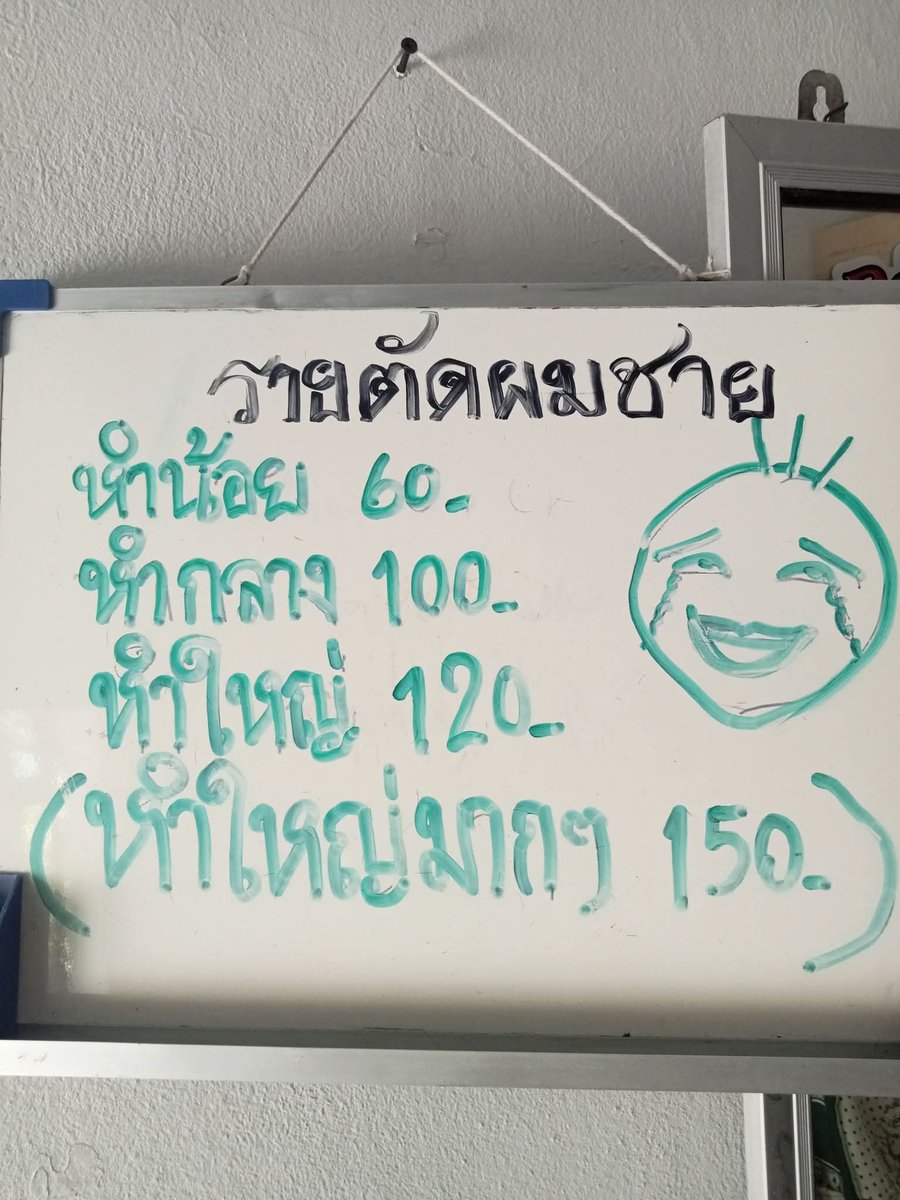 รายตัดผมชาย
หำน้อย 60.-
หำกลาง 100.-
หำใหญ่ 120.-
(หำใหญ่มากๆ 150.-)